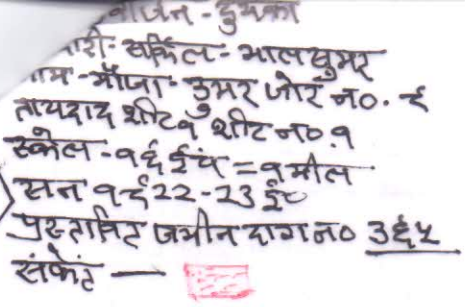 वीजन - दुमका
सर्किल - मालखुमर
नाम - मौजा - डुमर जोर नं०. ६
तायदाद शीट १ शीट नं०.१
स्केल - १६ ईंच = १ मील
सन १९२२-२३ ई०
प्रस्तावित जमीन दाग नं० ३६५
संकेत —